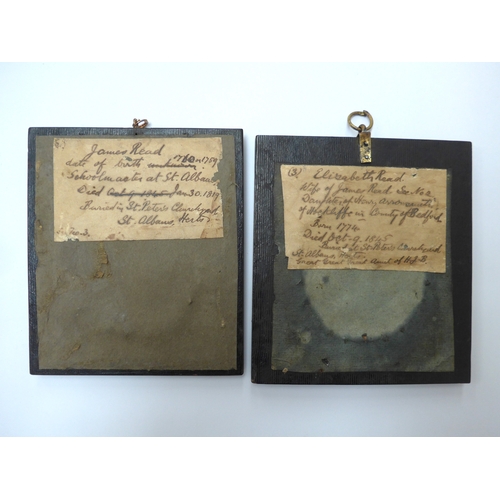 James Read
date of birth unknown 1759
Schoolmaster at St. Albans
Died Jan 30. 18
Buried in St. Peter's Churchyard
St. Albans, Herts.
(3) Elizabeth Read
Wife of James Read See No 2
Daughter of
of in County of Bedford
born 1774
Died Oct. 9. 1845
St Peter's Churchyard
St. Albans Herts
Great Great Aunt of